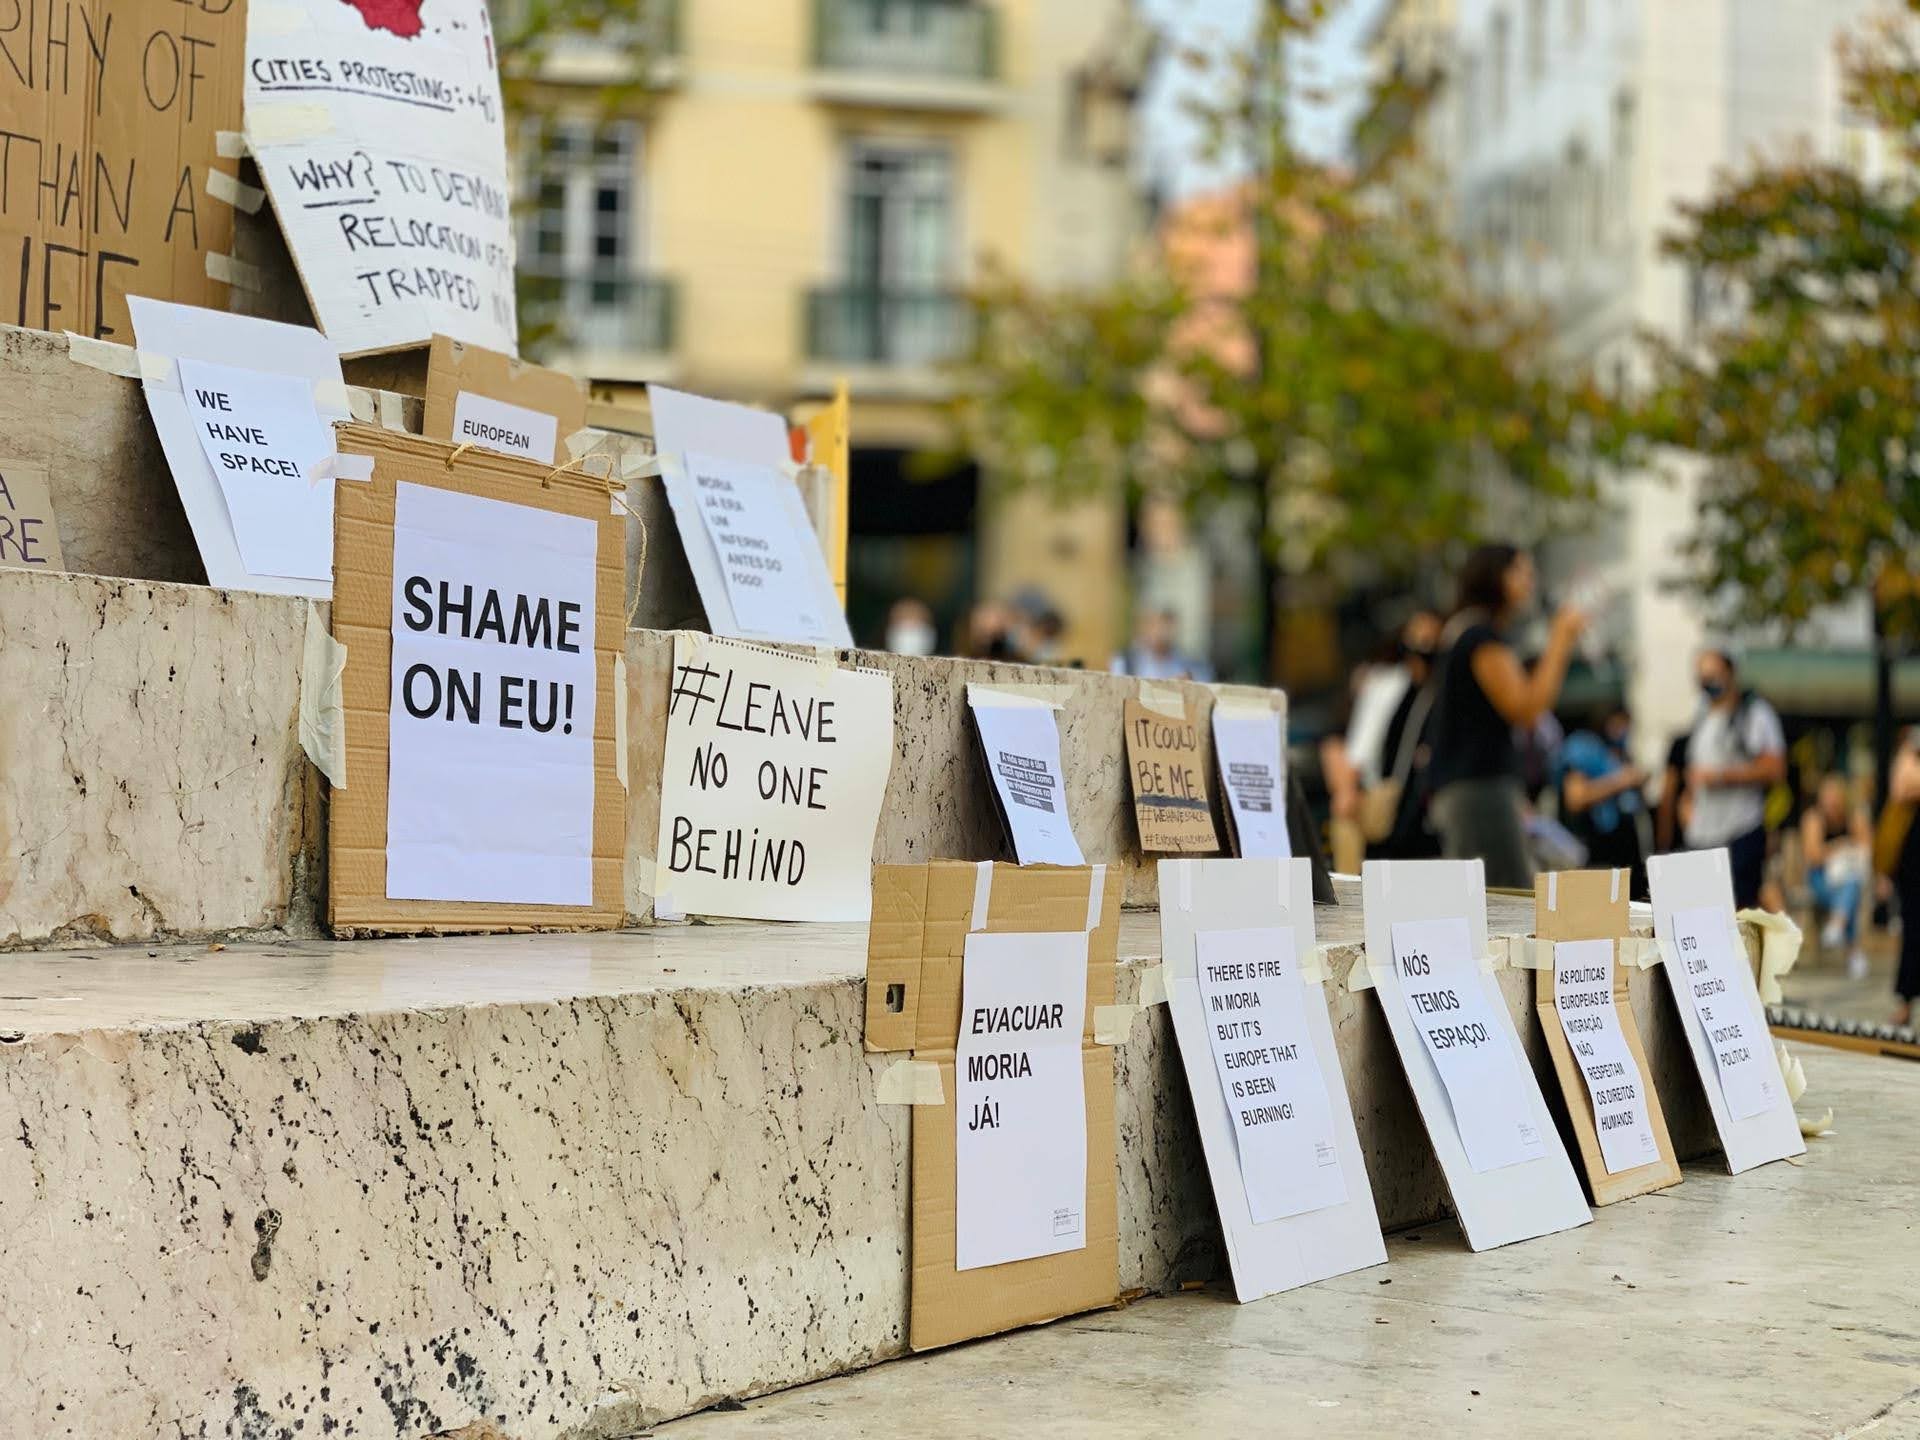 RTHY OF
THAN A
CITIES PROTESTING: +40
WHY? TO DEMAND
RELOCATION OF
TRAPPED
WE
HAVE
SPACE!
EUROPEAN
MORIA
JÁ ERA
UM
INFERNO
ANTES DO
FOGO!
A
RE
SHAME
ON EU!
#LEAVE
NO ONE
BEHIND
A vida aqui é tão
difícil que é tal como
IT COULD
BE ME.
#WEHAVESPACE
EVACUAR
MORIA
JÁ!
THERE IS FIRE
IN MORIA
BUT IT'S
EUROPE THAT
IS BEEN
BURNING!
NÓS
TEMOS
ESPAÇO!
AS POLÍTICAS
EUROPEIAS DE
MIGRAÇÃO
NÃO
RESPEITAM
OS DIREITOS
HUMANOS!
ISTO
É UMA
QUESTÃO
DE
VONTADE
POLÍTICA!